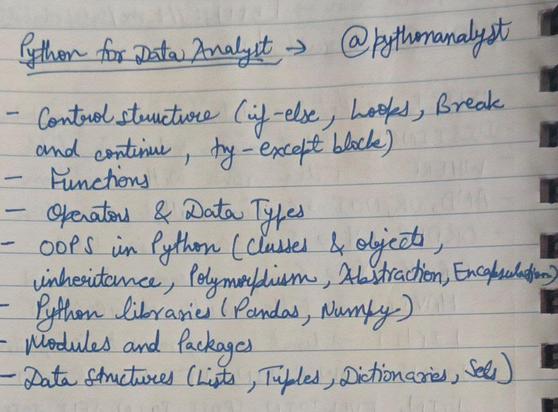 Python for Data Analyst → @pythonanalyst
- Control structure (if-else, Loops, Break
and continue, try-except block)
- Functions
- Operators & Data Types
- OOPS in Python (Classes & objects,
inheritance, Polymorphism, Abstraction, Encapsulation)
- Python libraries (Pandas, Numpy)
- Modules and Packages
- Data Structures (Lists, Tuples, Dictionaries, Sets)